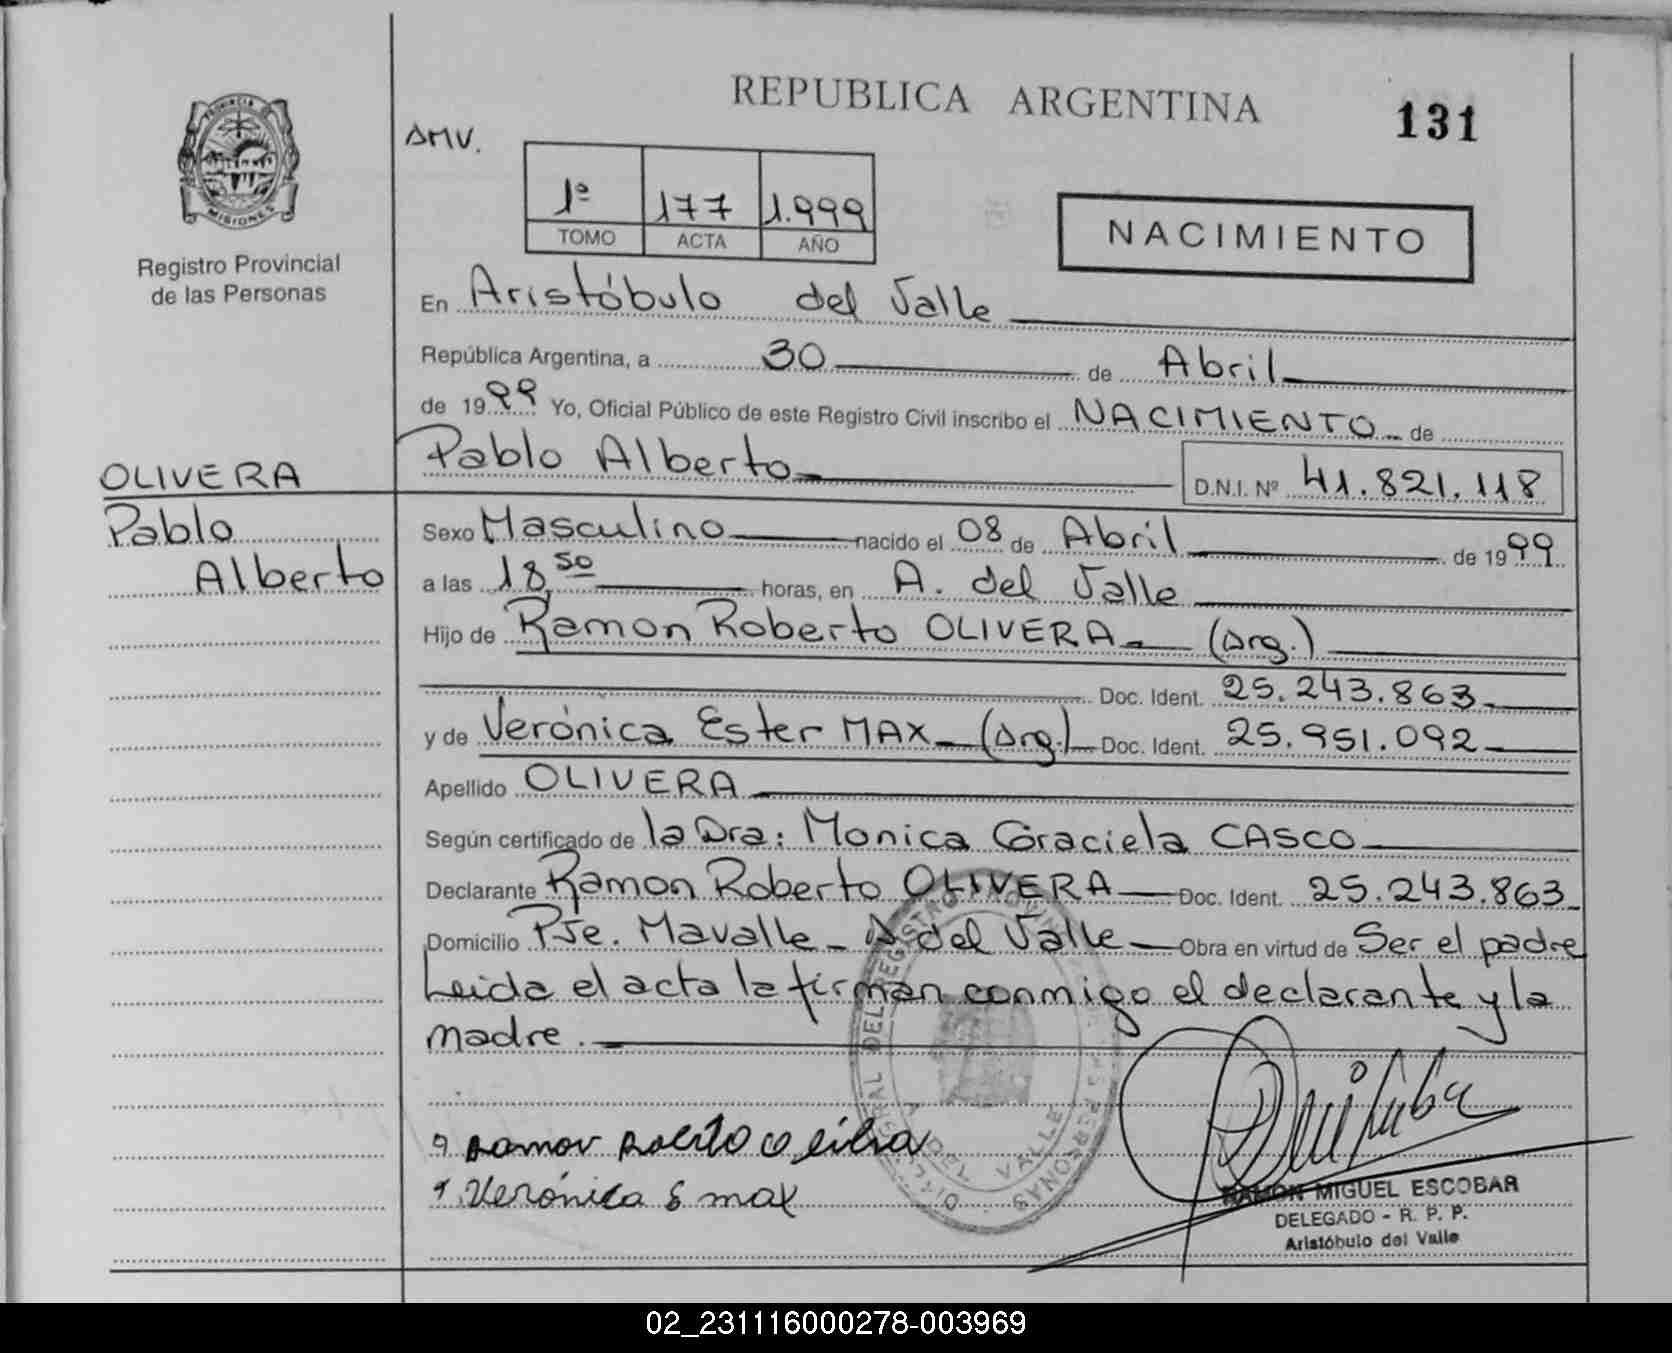 REPUBLICA ARGENTINA
131
AMV.
1º 177 1.999
TOMO ACTA AÑO
NACIMIENTO
PROVINCIA DE MISIONES
Registro Provincial
de las Personas
En Aristóbulo del Valle
República Argentina, a 30 de Abril
de 1999 Yo, Oficial Público de este Registro Civil inscribo el NACIMIENTO de
Pablo Alberto D.N.I. Nº 41.821.118
OLIVERA
Pablo
Alberto
Sexo Masculino nacido el 08 de Abril de 1999
a las 18,50 horas, en A. del Valle
Hijo de Ramon Roberto OLIVERA (Arg.)
Doc. Ident. 25.243.863
y de Verónica Ester MAX (Arg.) Doc. Ident. 25.951.092
Apellido OLIVERA
Según certificado de la Dra: Monica Graciela CASCO
Declarante Ramon Roberto OLIVERA Doc. Ident. 25.243.863
Domicilio Pje. Mavalle - A del Valle Obra en virtud de Ser el padre
Leida el acta la firman conmigo el declarante y la
madre.
Ramon Roberto Olivera
Verónica E max
A. DEL VALLE
RAMON MIGUEL ESCOBAR
DELEGADO - R. P. P.
Aristóbulo del Valle
02_231116000278-003969